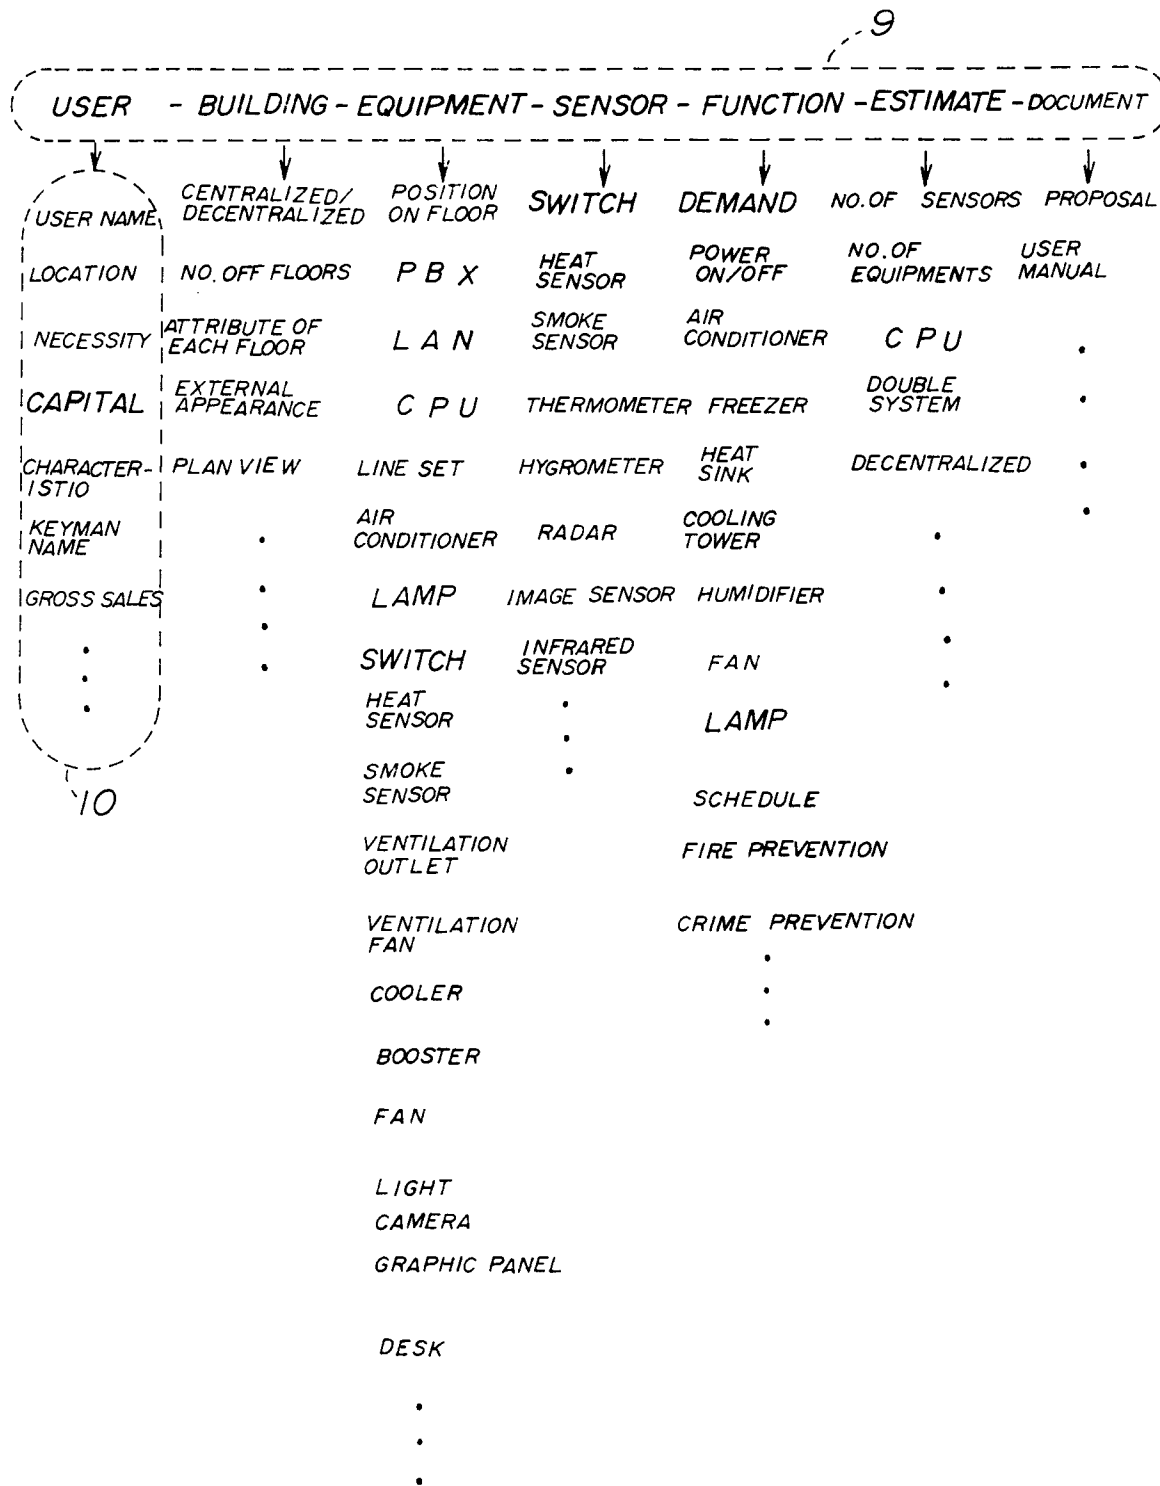 9
USER - BUILDING - EQUIPMENT - SENSOR - FUNCTION - ESTIMATE - DOCUMENT
USER NAME
LOCATION
NECESSITY
CAPITAL
CHARACTER-
ISTIO
KEYMAN
NAME
GROSS SALES
10
CENTRALIZED/
DECENTRALIZED
NO. OFF FLOORS
ATTRIBUTE OF
EACH FLOOR
EXTERNAL
APPEARANCE
PLAN VIEW
POSITION
ON FLOOR
PBX
LAN
CPU
LINE SET
AIR
CONDITIONER
LAMP
SWITCH
HEAT
SENSOR
SMOKE
SENSOR
VENTILATION
OUTLET
VENTILATION
FAN
COOLER
BOOSTER
FAN
LIGHT
CAMERA
GRAPHIC PANEL
DESK
SWITCH
HEAT
SENSOR
SMOKE
SENSOR
THERMOMETER
HYGROMETER
RADAR
IMAGE SENSOR
INFRARED
SENSOR
DEMAND
POWER
ON/OFF
AIR
CONDITIONER
FREEZER
HEAT
SINK
COOLING
TOWER
HUMIDIFIER
FAN
LAMP
SCHEDULE
FIRE PREVENTION
CRIME PREVENTION
NO. OF SENSORS
NO. OF
EQUIPMENTS
CPU
DOUBLE
SYSTEM
DECENTRALIZED
PROPOSAL
USER
MANUAL